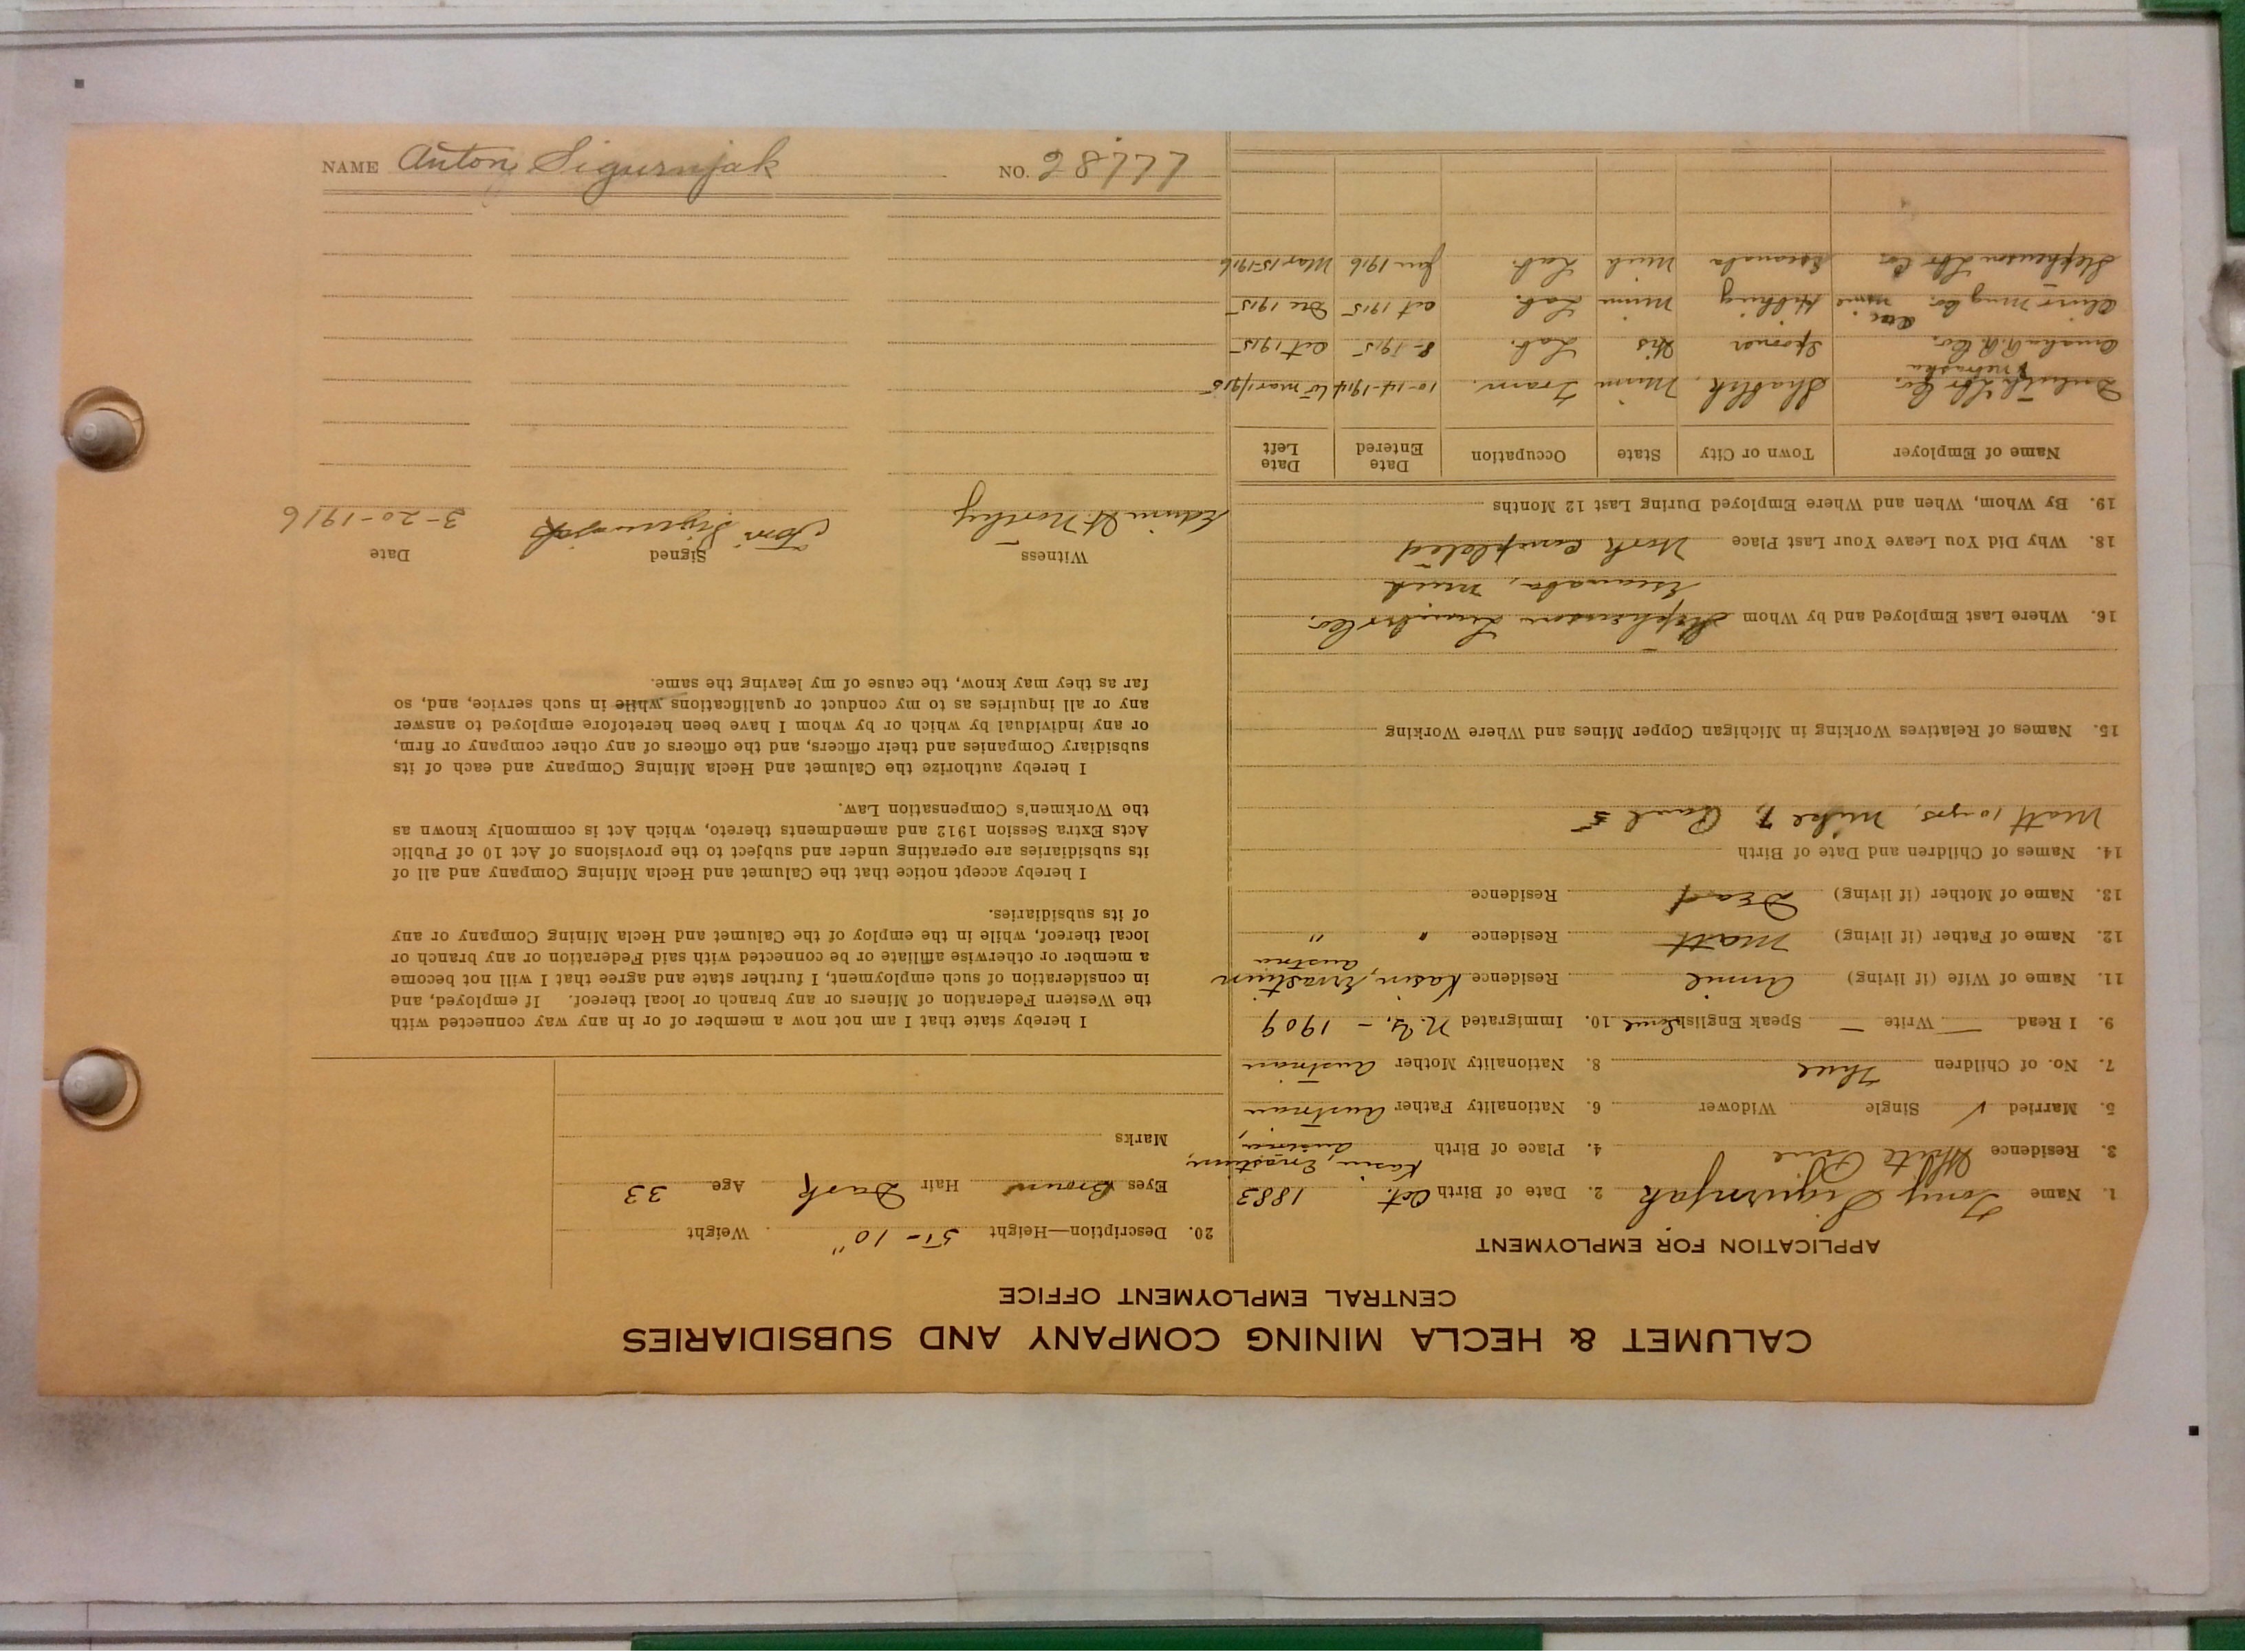 CALUMET & HECLA MINING COMPANY AND SUBSIDIARIES
CENTRAL EMPLOYMENT OFFICE
APPLICATION FOR EMPLOYMENT
1. Name Tony Sigurnjak 2. Date of Birth Oct. 1883
3. Residence White Pine 4. Place of Birth Kasin,
Austria,
5. Married ✓ Single Widower 6. Nationality Father Austrian
7. No. of Children Three 8. Nationality Mother Austrian
9. I Read — Write — Speak English Some 10. Immigrated N.Y. - 1909
11. Name of Wife (if living) Annie Residence Kasin,
Austria
12. Name of Father (if living) Matt Residence " "
13. Name of Mother (if living) Dead Residence
14. Names of Children and Date of Birth
Matt 10 yrs, Mike 7, Paul 5
15. Names of Relatives Working in Michigan Copper Mines and Where Working
16. Where Last Employed and by Whom Stephenson Lumber Co.
Escanaba, Mich
18. Why Did You Leave Your Last Place Work completed
19. By Whom, When and Where Employed During Last 12 Months
Name of Employer Town or City State Occupation Date Entered Date Left
Duluth Lbr Co. Minn Tram. 10-14-1914 to Mar 1/915
Omaha & Nebraska R.R. Co. Spooner Wis Lab. 8-1915 Oct 1915
Oliver Ming Co. Hibbing Minn Lab. Oct 1915 Dec 1915
Stephenson Lbr Co. Escanaba Mich Lab. Jan 1916 Mar 15-1916
20. Description—Height 5'-10" Weight
Eyes Brown Hair Dark Age 33
Marks
I hereby state that I am not now a member of or in any way connected with
the Western Federation of Miners or any branch or local thereof. If employed, and
in consideration of such employment, I further state and agree that I will not become
a member or otherwise affiliate or be connected with said Federation or any branch or
local thereof, while in the employ of the Calumet and Hecla Mining Company or any
of its subsidiaries.
I hereby accept notice that the Calumet and Hecla Mining Company and all of
its subsidiaries are operating under and subject to the provisions of Act 10 of Public
Acts Extra Session 1912 and amendments thereto, which Act is commonly known as
the Workmen's Compensation Law.
I hereby authorize the Calumet and Hecla Mining Company and each of its
subsidiary Companies and their officers, and the officers of any other company or firm,
or any individual by which or by whom I have been heretofore employed to answer
any or all inquiries as to my conduct or qualifications while in such service, and, so
far as they may know, the cause of my leaving the same.
Witness Signed Date
Edwin H. Northey Toni Sigurnjak 3-20-1916
NAME Anton Sigurnjak NO. 28777